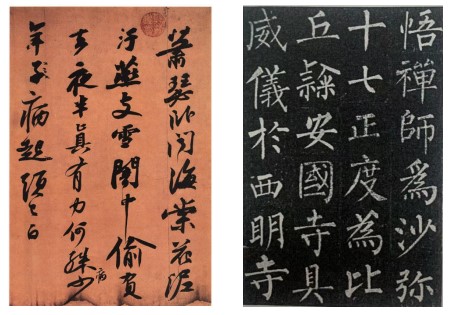 蕭瑟臥聞海棠花泥
汙燕支雪闇中偷負
去夜半真有力何殊病少
年子病起頭已白
悟禪師爲沙弥
十七正度為比
丘隸安國寺具
威儀於西明寺